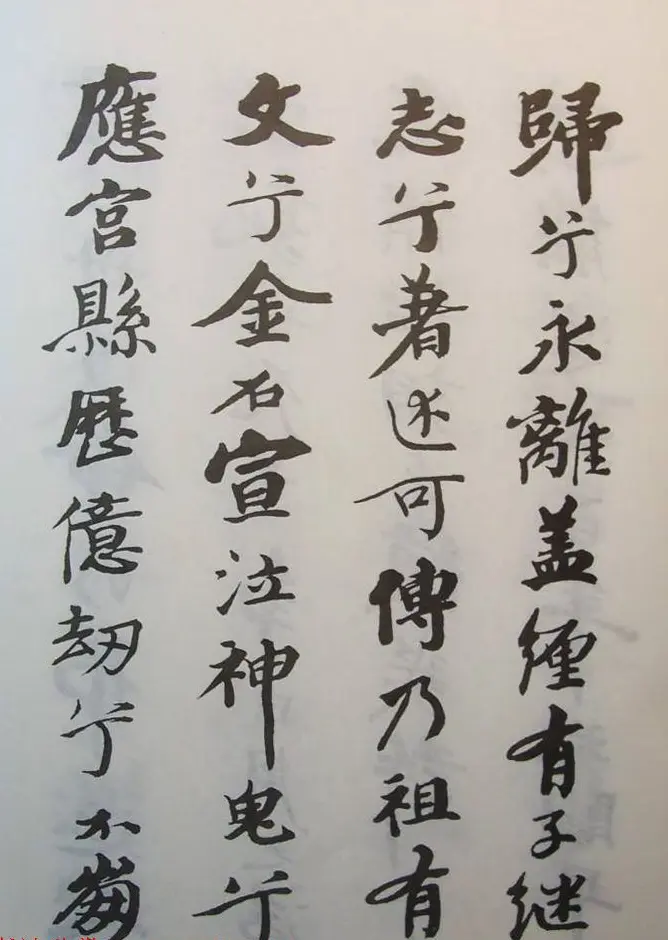 歸兮永離盖纏有子继
志兮著述可傳乃祖有
文兮金石宣泣神鬼兮
應宫縣歷億劫兮不